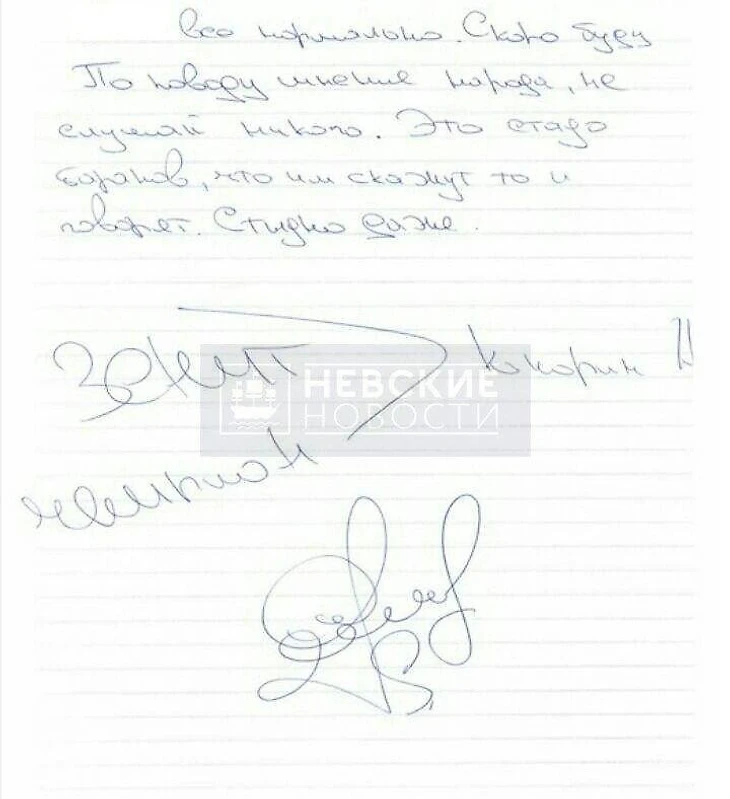 все нормально. Скоро буду
По поводу мнение народа, не
слушай никого. Это стадо
баранов, что им скажут то и
говорят. Стыдно даже.
Зенит
Кокорин А
НЕВСКИЕ
НОВОСТИ
чемпион